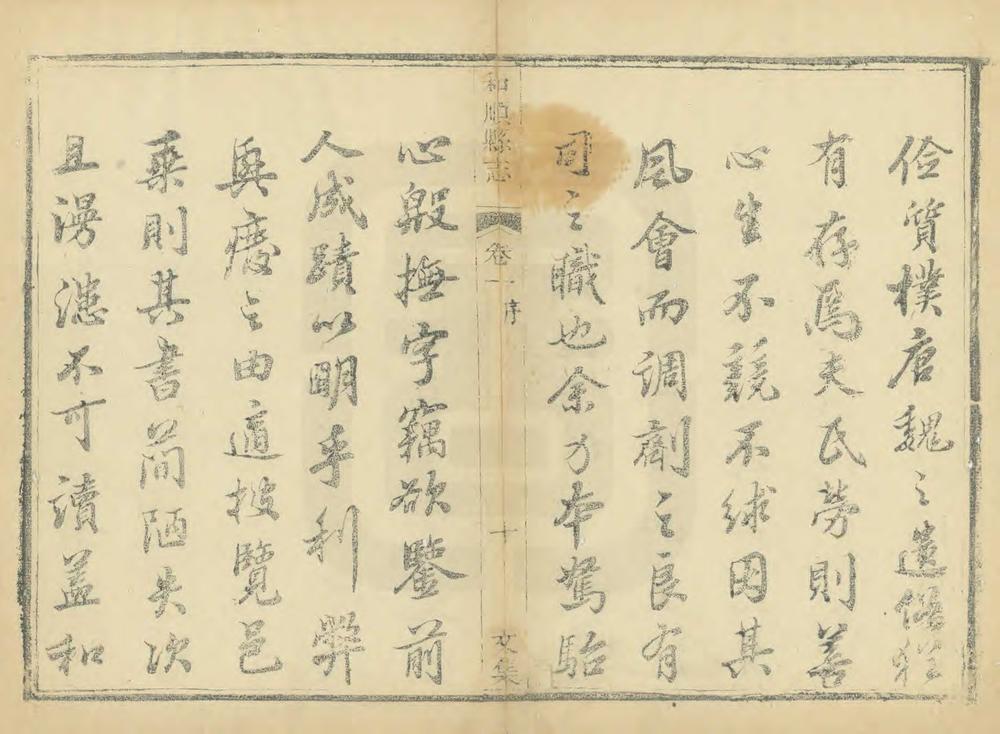 儉質樸唐魏之遺俗猶
有存焉夫民勞則善
心生不競不絿因其
風會而調劑之良有
司之職也余乃本駑駘
和順縣志 卷一 序 十 文集
心殷撫字竊欲鑒前
人成蹟以明乎利弊
興廢之由適披覽邑
乘則其書简陋失次
且漫漶不可讀蓋和